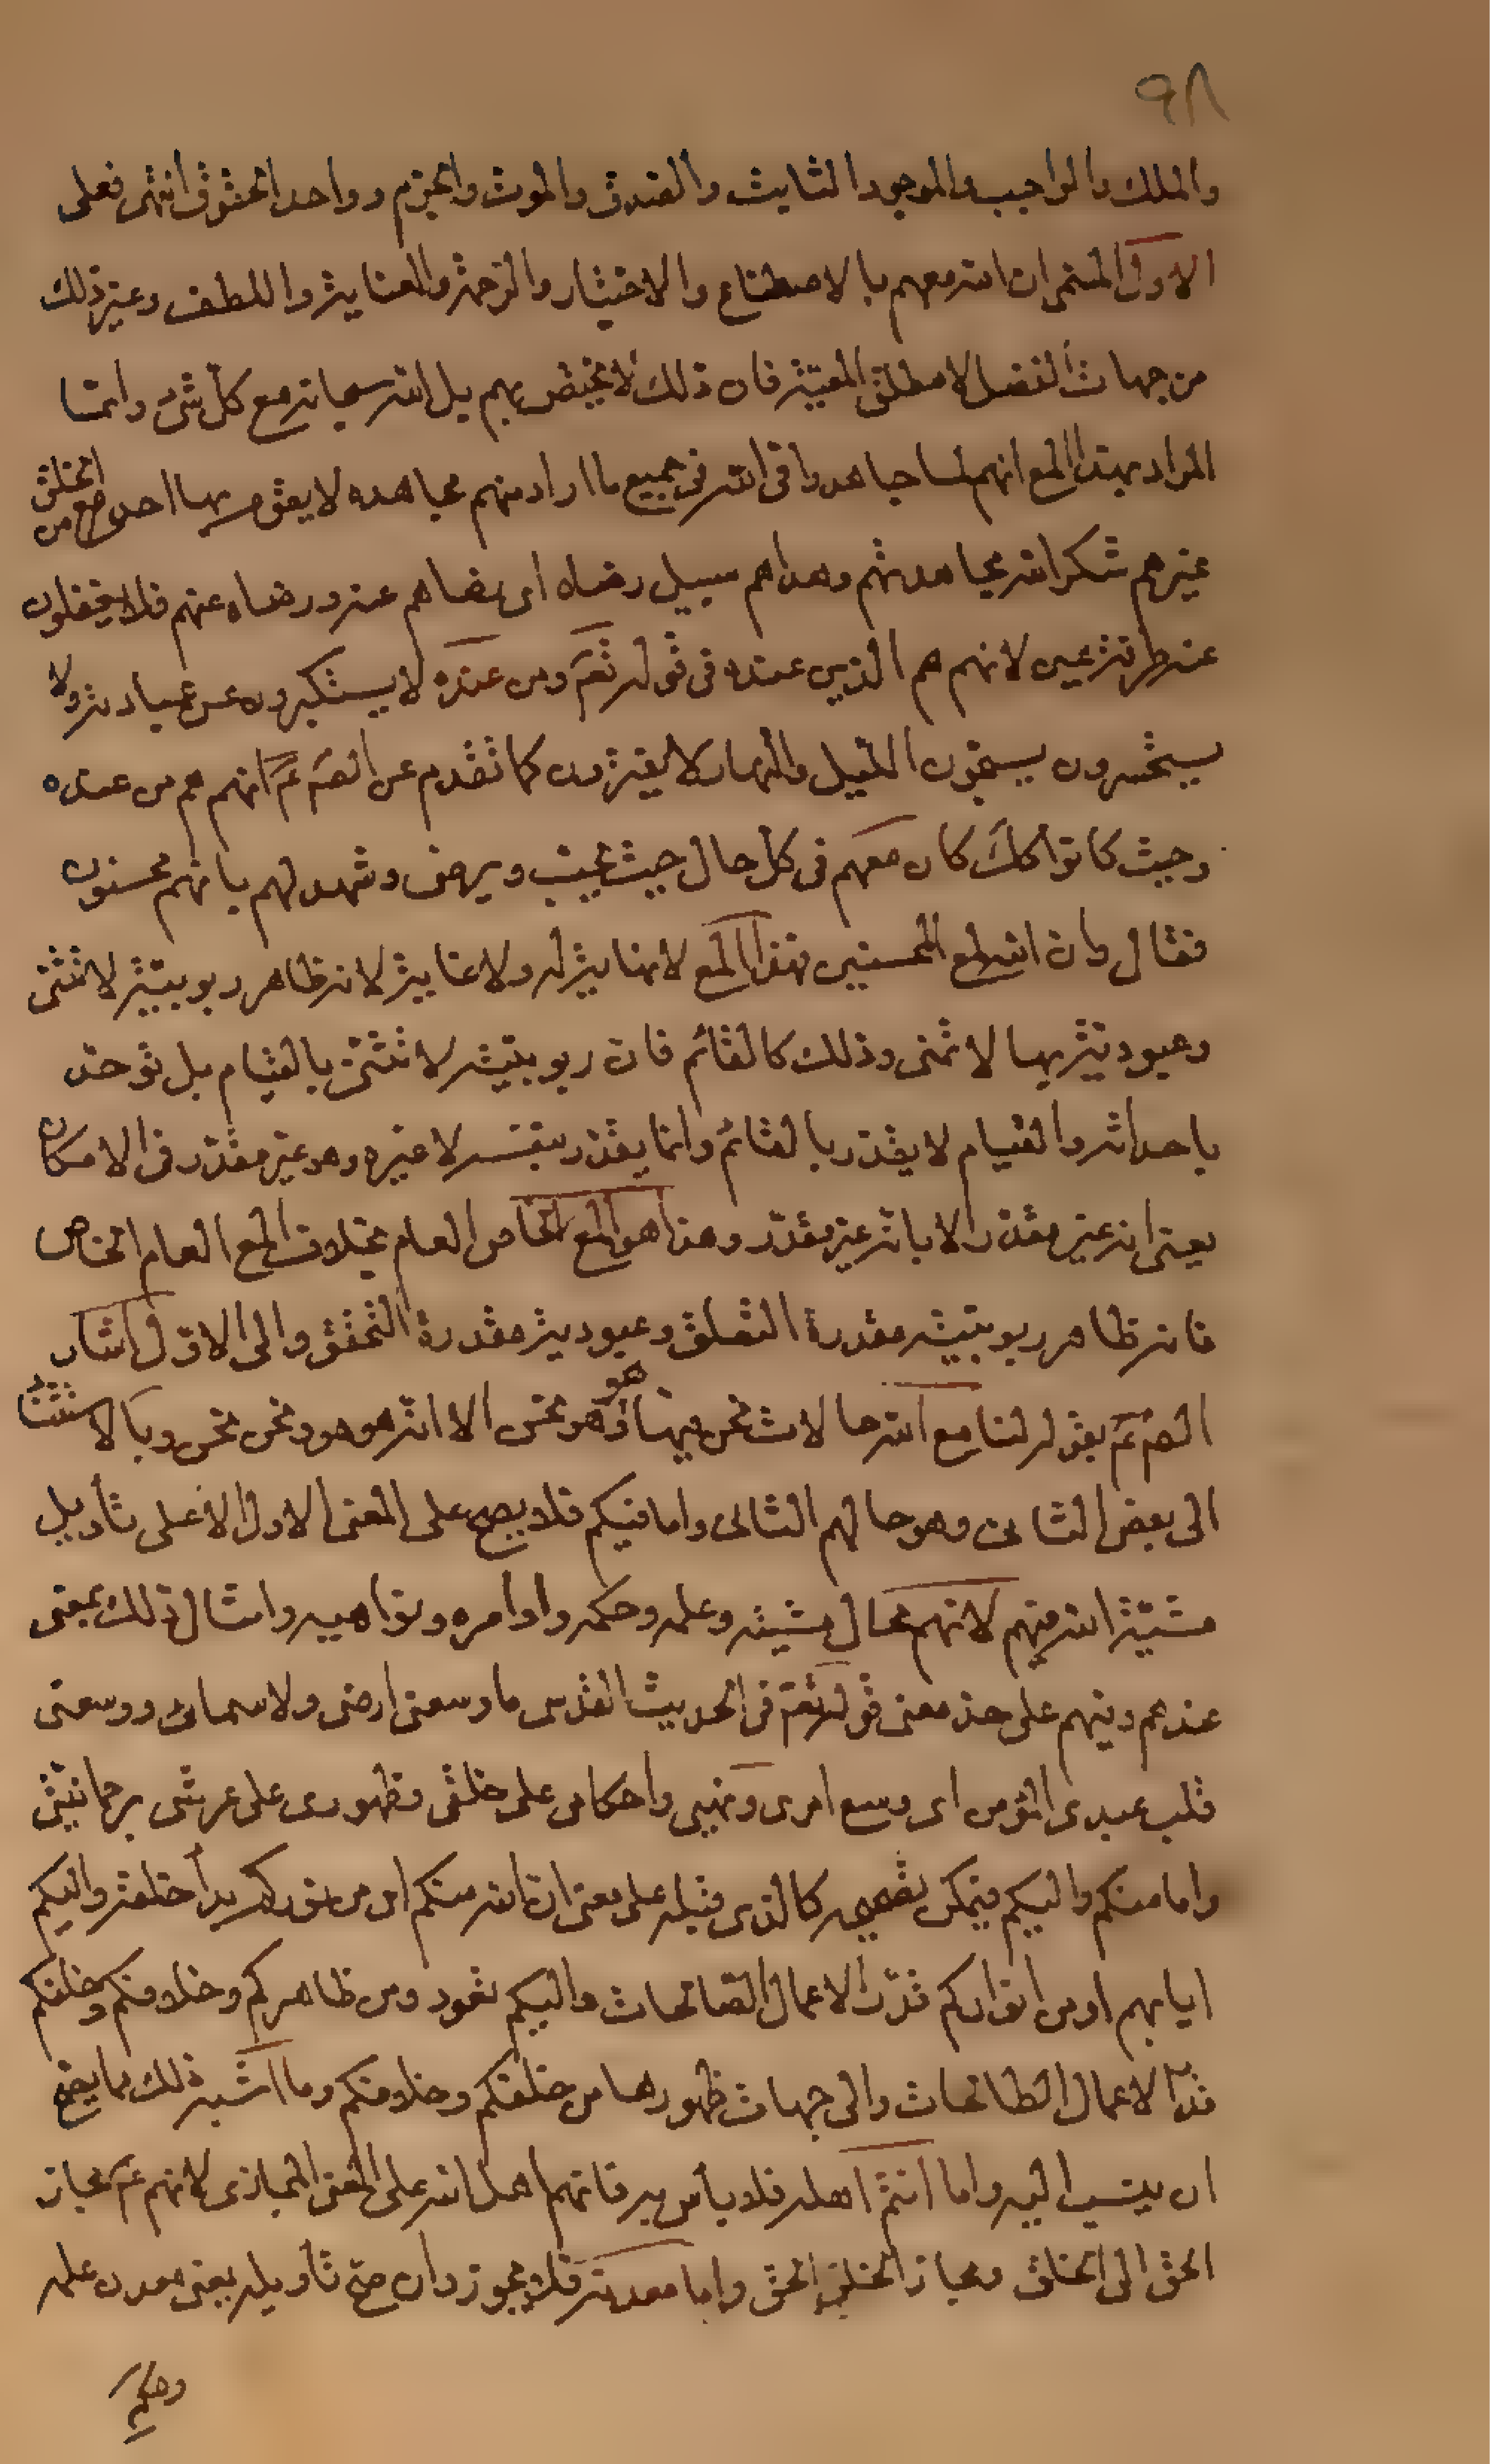 ٩٨
والملك والواجب والموجود الثابت والصدق والموت والحزم وواحد الحقوق انتهى فعلى
الاول المعنى ان الله معهم بالاصطناع والاختيار والرحمة والعناية واللطف وغير ذلك
من جهات الفضل لا مطلق المعية فان ذلك لا يختص بهم بل الله سبحانه مع كل شئ وانما
المراد بهذا المع انهم لما جاهدوا فى الله فى جميع ما اراد منهم مجاهدة لا يقوم بها احد من الخلق
غيرهم شكر الله مجاهدتهم وهداهم سبيل رضاه اى رضاهم عنه ورضاه عنهم فلا يغفلون
عنه طرفة عين لانهم هم الذين عنده فى قوله تعم ومن عنده لا يستكبرون عن عبادته ولا
يستحسرون يسبحون الليل والنهار لا يفترون كما تقدم عن الصم عم انهم هم من عنده
وحيث كانوا كك كان معهم فى كل حال حيث يحب ويرضى وشهد لهم بانهم محسنون
فقال وان الله لمع المحسنين فهذا المع لا نهاية له ولا غاية لانه ظاهر ربوبية لا تثنى
وعبوديته بها لا تمنى وذلك كالقائم فان ربوبيته لا تثنى بالقيام بل توحد
باحداثه والقيام لا يقدر بالقائم وانما يقدر بنفسه لا غيره وهو غير مقدر فى الامكان
يعنى انه غير مقدر الا بانه غير مقدر وهذا هو المع الخاص العام بخلاف المع العام الخاص
فانه ظاهر ربوبيته مقدرة التعلق وعبودية مقدرة التحقق والى الاول اشار
الصم عم بقوله لنا مع الله حالات نحن فيها هو وهو نحن الا انه هو هو ونحن نحن وبالاستثناء
الى بعض الثانى وهو حالهم الثانى واما فيكم فلا يصح على المعنى الاول الا على تأويل
مشية الله فيهم لانهم محال مشيته وعلمه وحكمه واوامره ونواهيه وامثال ذلك بمعنى
عندهم وفيهم على حد معنى قوله تعم فى الحديث القدسى ما وسعنى ارضى ولا سمائى ووسعنى
قلب عبدى المؤمن اى وسع امرى ونهيى واحكامى على خلقى وظهورى على عرشى برحمانيتى
واما منكم واليكم فيمكن تصحيحه كالذى قبله على معنى ان الله منكم اى من نوركم بدأ خلقه واليكم
ايابهم او من انواركم قدّر الاعمال الصالحات واليكم تعود ومن ظاهركم وخلافكم وخلفكم
قدّر الاعمال الطالحات والى جهات ظهورها من خلفكم وخلافكم وما اشبه ذلك مما يصح
ان ينسب اليه واما انتم اهله فلا بأس به فانهم اهل الله على المعنى المجازى لانهم عم مجاز
الحق الى الخلق ومجاز الخلق الى الحق واما معدنه فلا يجوز وان صح تأويله بمعنى معدن علمه
وحكمه